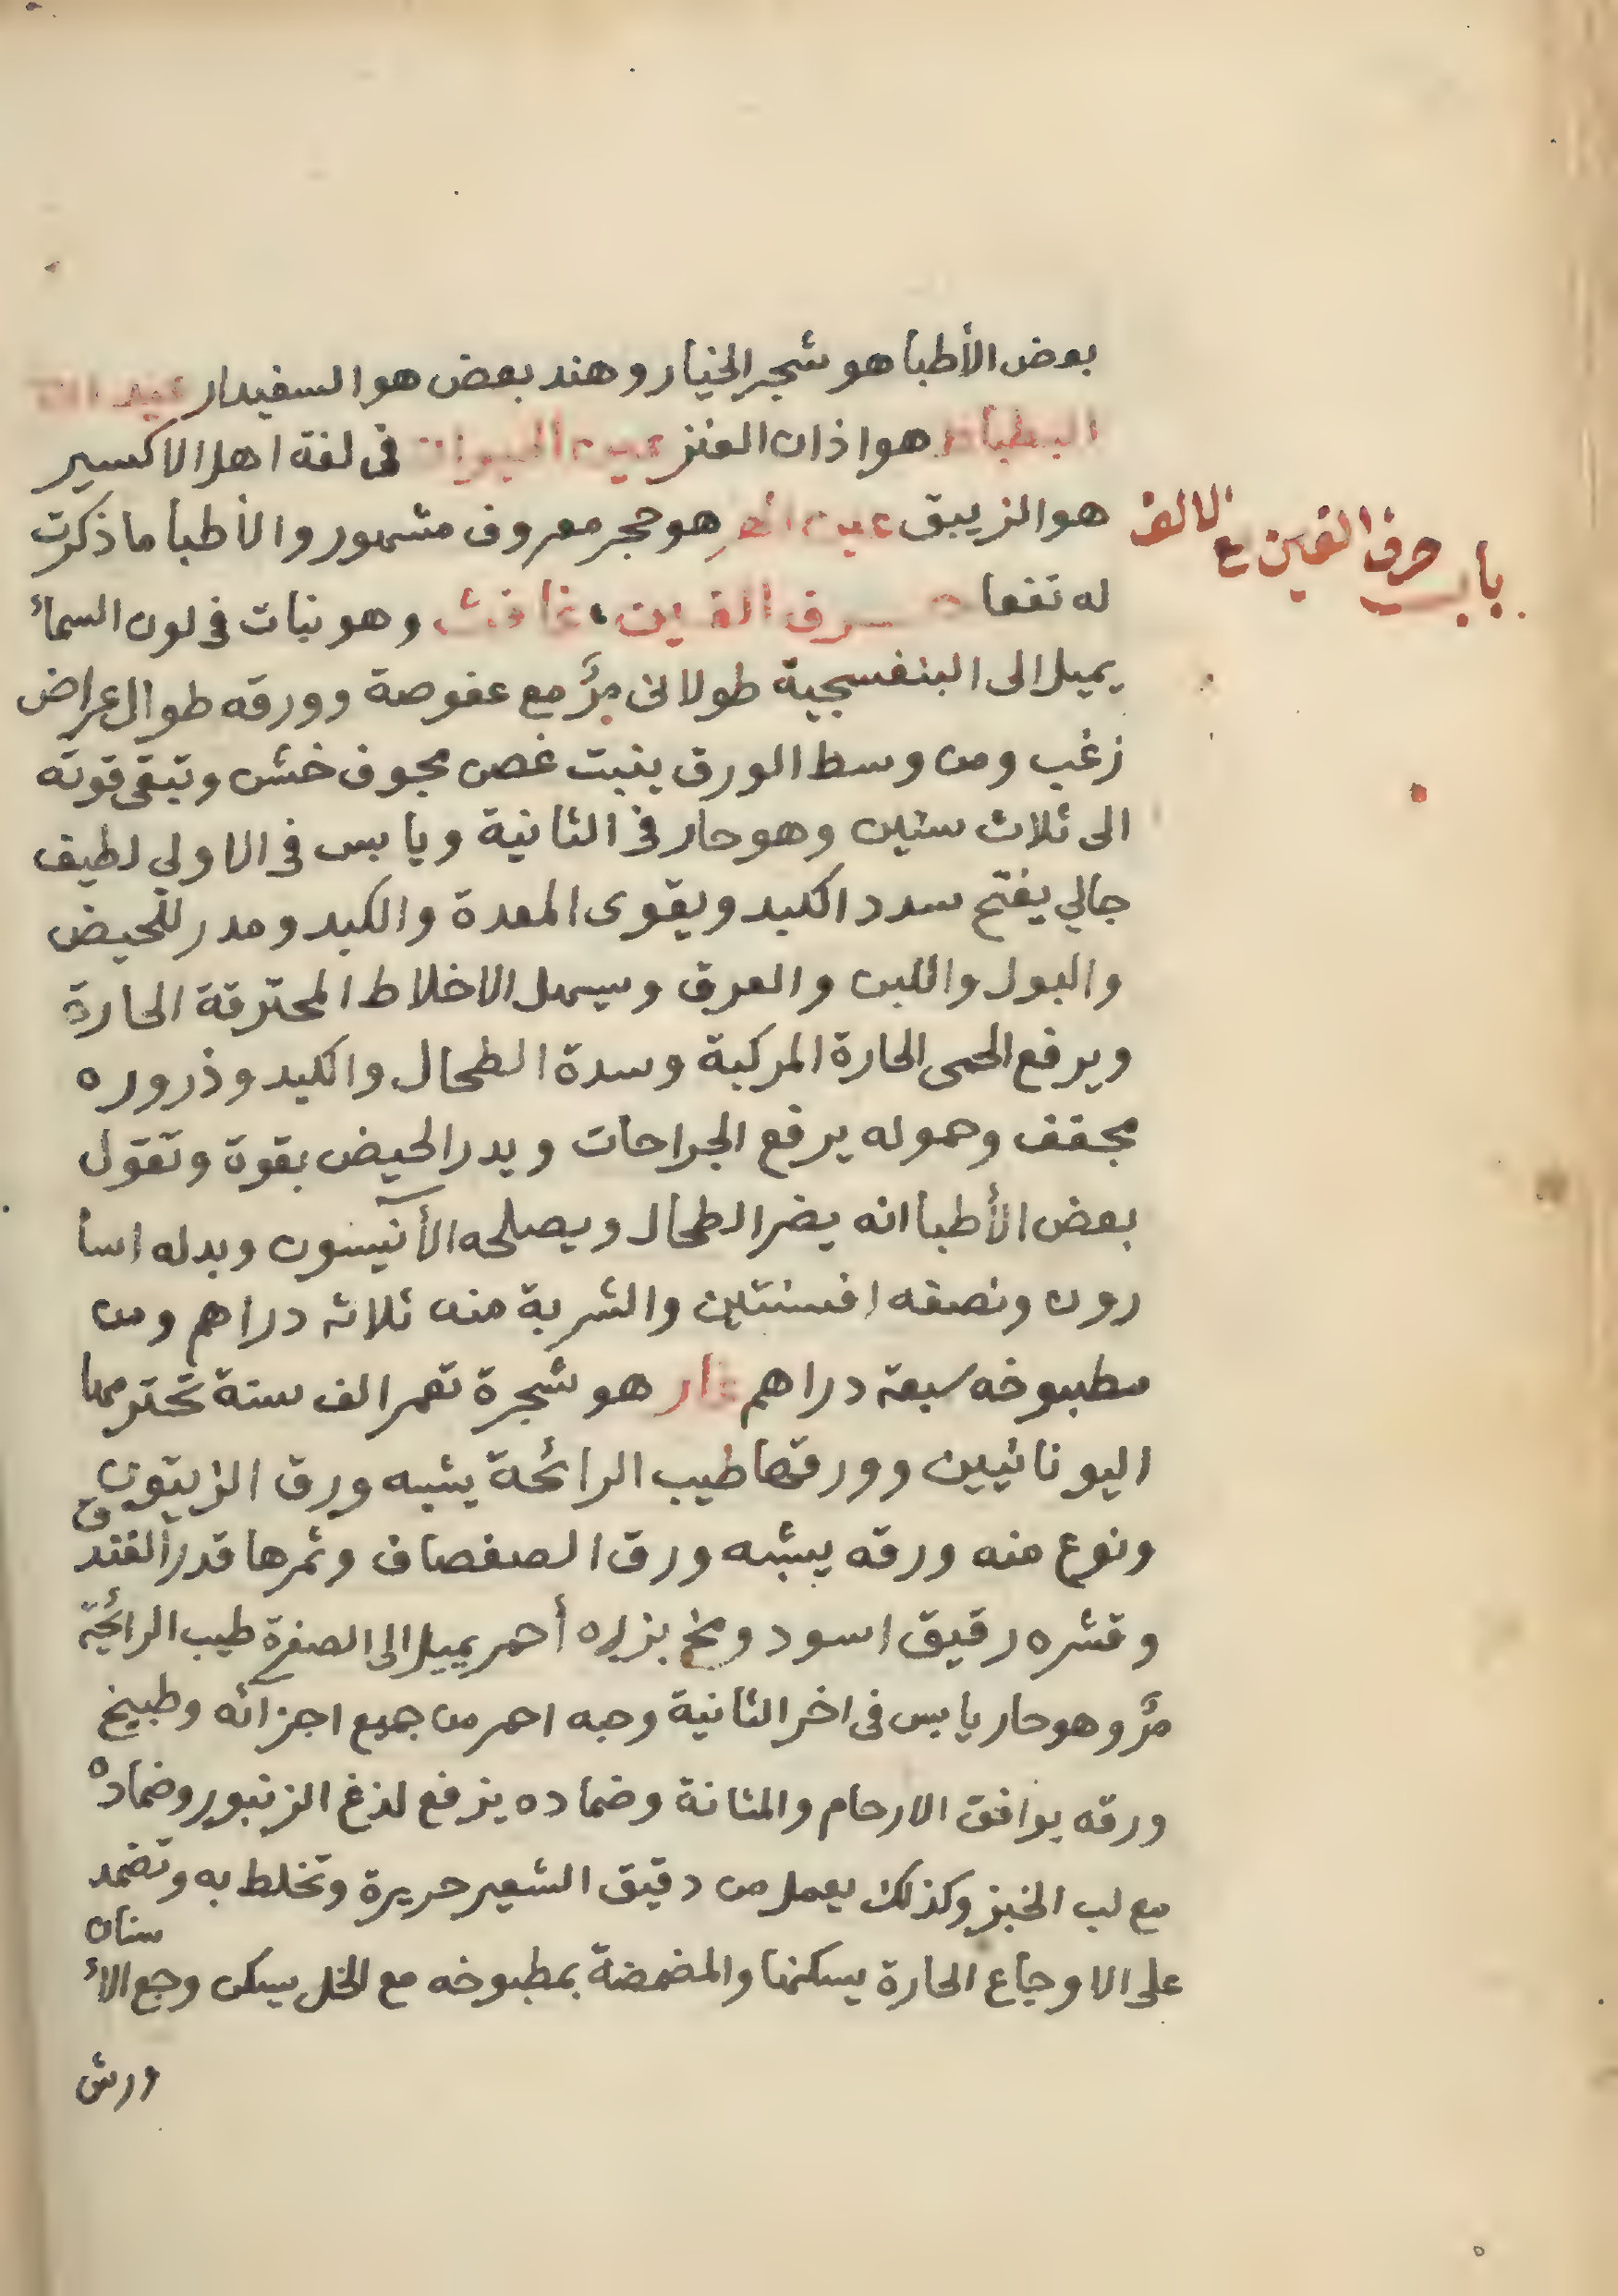 بعض الأطبا هو شجر الخيار وهند بعض هو السفيدار
هو اذان العنز عين الحيوان فى لغة اهل الاكسير
هو الزيبق عين الهر هو حجر معروف مشهور والأطبا ما ذكرت
باب حرف الغين مع الالف
له نفعا حرف الغين غافث وهو نبات فى لون السمائ
يميل الى البنفسجية طولانى مرَّ مع عفوصة وورقه طوال عراض
زغب ومن وسط الورق ينبت غصن مجوف خشن وتبقى قوته
الى ثلاث سنين وهو حار فى الثانية ويابس فى الاولى لطيف
جالي يفتح سدد الكبد ويقوى المعدة والكبد ومدر للحيض
والبول واللبن والعرق وسيهل الاخلاط المحترقة الحارة
ويرفع الحمى الحارة المركبة وسدة الطحال والكبد وذروره
مجفف وحموله يرفع الجراحات ويدر الحيض بقوة وتقول
بعض الأطبا انه يضر الطحال ويصلحه الأنيسون وبدله اسا
رون ونصفه افسنتين والشربة منه ثلاثه دراهم ومن
مطبوخه سبعة دراهم غار هو شجرة تعمر الف سنة تحترمها
اليونانيين وورقها طيب الرائحة يشبه ورق الزيتون
ونوع منه ورقه يشبه ورق الصفصاف وثمرها قدر الفندق
وقشره رقيق اسود ومخ بزره أحمر يميل الى الصفرة طيب الرائحة
مرَّ وهو حار يابس فى اخر الثانية وحبه احر من جميع اجزائه وطبيخ
ورقه يوافق الارحام والمثانة وضماده يرفع لذغ الزنبور وضماده
مع لب الخبز وكذلك يعمل من دقيق الشعير حريرة وتخلط به وتضمد
على الاوجاع الحارة يسكنها والمضمضة بمطبوخه مع الخل يسكن وجع الأسنان
ورش